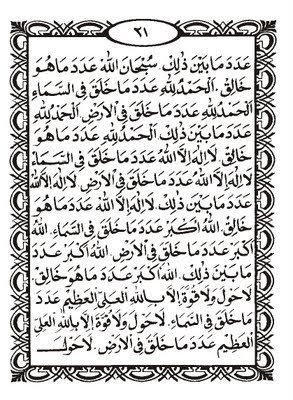 ٢١
عَدَدَ مَا بَيْنَ ذٰلِكَ. سُبْحَانَ اللهِ عَدَدَ مَا هُوَ
خَالِقٌ. اَلْحَمْدُ لِلّٰهِ عَدَدَ مَا خَلَقَ فِى السَّمَاءِ
اَلْحَمْدُ لِلّٰهِ عَدَدَ مَا خَلَقَ فِى الْاَرْضِ. اَلْحَمْدُ لِلّٰهِ
عَدَدَ مَا بَيْنَ ذٰلِكَ. اَلْحَمْدُ لِلّٰهِ عَدَدَ مَا هُوَ
خَالِقٌ. لَا اِلٰهَ اِلَّا اللهُ عَدَدَ مَا خَلَقَ فِى السَّمَاءِ
لَا اِلٰهَ اِلَّا اللهُ عَدَدَ مَا خَلَقَ فِى الْاَرْضِ. لَا اِلٰهَ اِلَّا اللهُ
عَدَدَ مَا بَيْنَ ذٰلِكَ. لَا اِلٰهَ اِلَّا اللهُ عَدَدَ مَا هُوَ
خَالِقٌ. اَللهُ اَكْبَرُ عَدَدَ مَا خَلَقَ فِى السَّمَاءِ. اَللهُ
اَكْبَرُ عَدَدَ مَا خَلَقَ فِى الْاَرْضِ. اَللهُ اَكْبَرُ عَدَدَ
مَا بَيْنَ ذٰلِكَ. اَللهُ اَكْبَرُ عَدَدَ مَا هُوَ خَالِقٌ.
لَا حَوْلَ وَلَا قُوَّةَ اِلَّا بِاللهِ الْعَلِىِّ الْعَظِيْمِ عَدَدَ
مَا خَلَقَ فِى السَّمَاءِ. لَا حَوْلَ وَلَا قُوَّةَ اِلَّا بِاللهِ الْعَلِىِّ
الْعَظِيْمِ عَدَدَ مَا خَلَقَ فِى الْاَرْضِ. لَا حَوْلَ